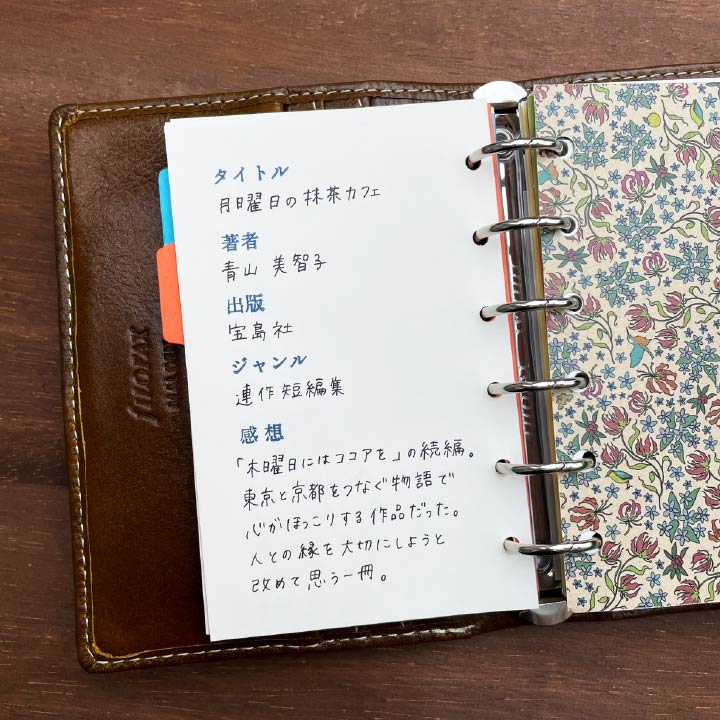 タイトル
月曜日の抹茶カフェ
著者
青山 美智子
出版
宝島社
ジャンル
連作短編集
感想
「木曜日にはココアを」の続編。
東京と京都をつなぐ物語で
心がほっこりする作品だった。
人との縁を大切にしようと
改めて思う一冊。
filofax